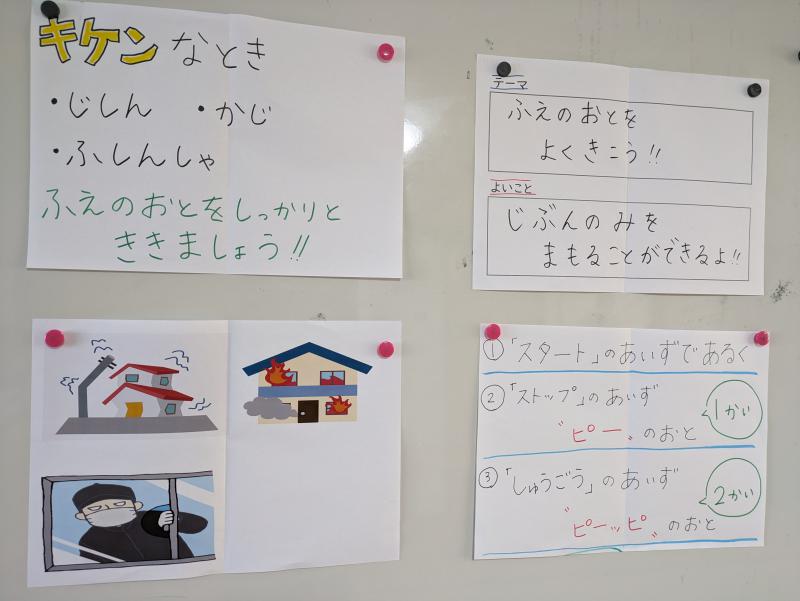 キケンなとき
・じしん ・かじ
・ふしんしゃ
ふえのおとをしっかりと
ききましょう!!
テーマ
ふえのおとを
よくきこう!!
よいこと
じぶんのみを
まもることができるよ!!
① 「スタート」のあいずであるく
② 「ストップ」のあいず
1かい
"ピー"のおと
③ 「しゅうごう」のあいず
2かい
"ピーッピ"のおと